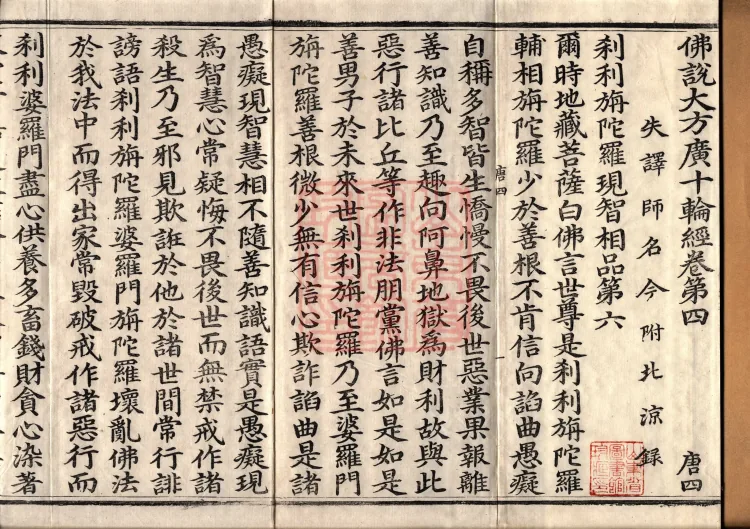 佛說大方廣十輪經卷第四 唐四
失譯師名今附北涼錄
刹利旃陀羅現智相品第六
爾時地藏菩薩白佛言世尊是刹利旃陀羅
輔相旃陀羅少於善根不肯信向諂曲愚癡
唐四 一
自稱多智皆生憍慢不畏後世惡業果報離
善知識乃至趣向阿鼻地獄為財利故與此
惡行諸比丘等作非法朋黨佛言如是如是
善男子於未來世刹利旃陀羅乃至婆羅門
旃陀羅善根微少無有信心欺詐諂曲是諸
愚癡現智慧相不隨善知識語實是愚癡現
為智慧心常疑悔不畏後世而無禁戒作諸
殺生乃至邪見欺誑於他於諸世間常行誹
謗語刹利旃陀羅婆羅門旃陀羅壞亂佛法
於我法中而得出家常毀破戒作諸惡行而
刹利婆羅門盡心供養多畜錢財貪心染著